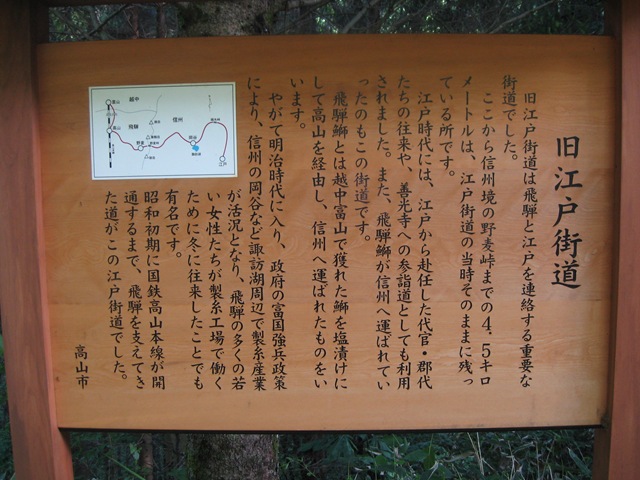 旧江戸街道
旧江戸街道は飛騨と江戸を連絡する重要な
街道でした。
ここから信州境の野麦峠までの4.5キロ
メートルは、江戸街道の当時そのままに残っ
ている所です。
江戸時代には、江戸から赴任した代官・郡代
たちの往来や、善光寺への参詣道としても利用
されました。また、飛騨鰤が信州へ運ばれてい
ったのもこの街道です。
飛騨鰤とは越中富山で獲れた鰤を塩漬けに
して高山を経由し、信州へ運ばれたものをい
います。
やがて明治時代に入り、政府の富国強兵政策
により、信州の岡谷など諏訪湖周辺で製糸産業
が活況となり、飛騨の多くの若
い女性たちが製糸工場で働く
ために冬に往来したことでも
有名です。
昭和初期に国鉄高山本線が開
通するまで、飛騨を支えてき
た道がこの江戸街道でした。
高山市
富山
越中
飛騨
信州
高山
野麦
江戸